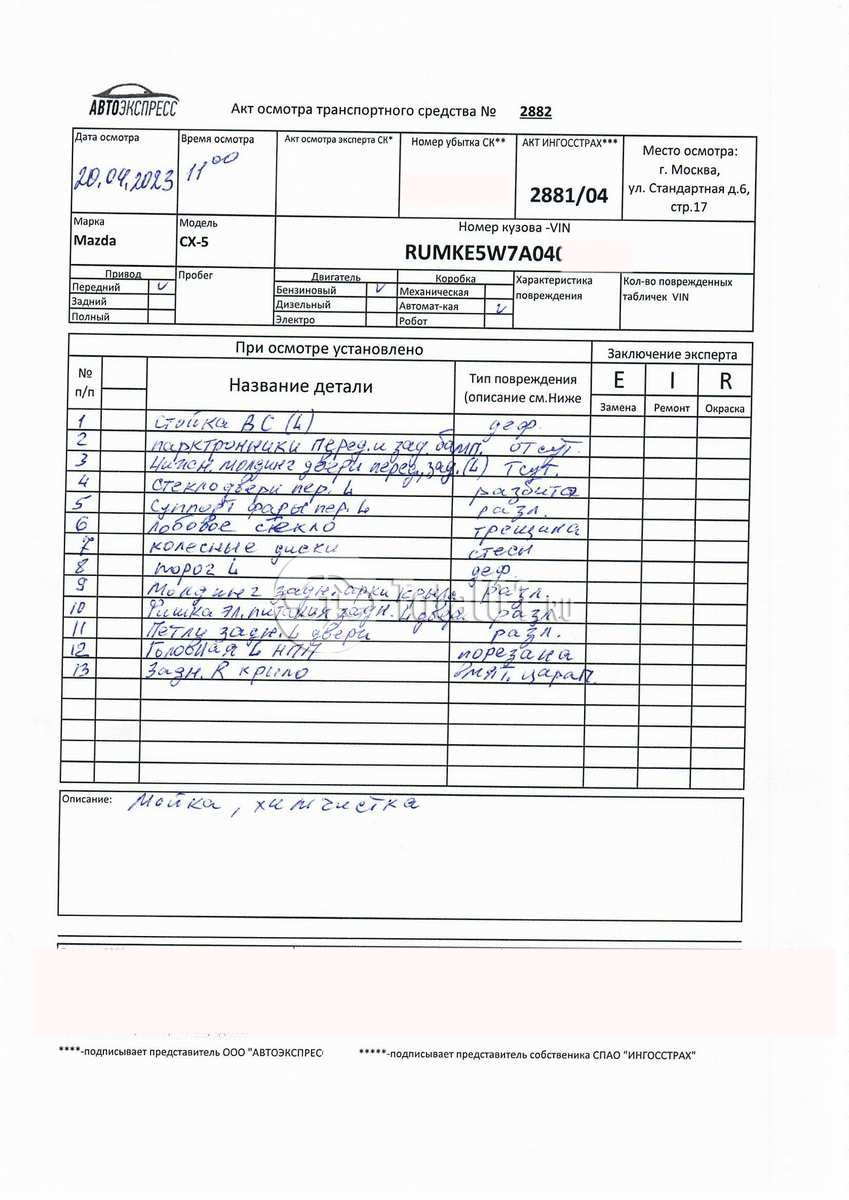 АВТОЭКСПРЕСС
Акт осмотра транспортного средства № 2882
Дата осмотра Время осмотра Акт осмотра эксперта СК* Номер убытка СК** АКТ ИНГОССТРАХ*** Место осмотра:
20.04.2023 11 00 2881/04 г. Москва,
ул. Стандартная д.6,
стр.17
Марка Модель Номер кузова -VIN
Mazda CX-5 RUMKE5W7A04
Привод Пробег Двигатель Коробка Характеристика повреждения Кол-во поврежденных табличек VIN
Передний V Бензиновый V Механическая
Задний Дизельный Автомат-кая V
Полный Электро Робот
При осмотре установлено Заключение эксперта
№ п/п Название детали Тип повреждения (описание см.Ниже E I R
Замена Ремонт Окраска
1 Стойка ВС (L) деф.
2 парктронники перед. и зад. бамп. отсут.
3 Нижн. молдинг двери перед, зад. (L) тсут.
4 Стекло двери пер. L разбито
5 Суппорт фары пер. L разл.
6 Лобовое стекло трещина
7 колесные диски стесы
8 порог L деф
9 Молдинг задн. арки разл.
10 Фишка эл. питания задн. L двери разл
11 Петли задн. L двери разл.
12 Головная L НПП порезана
13 Задн. R крыло царап.
Описание: Мойка, химчистка
****-подписывает представитель ООО "АВТОЭКСПРЕС *****-подписывает представитель собственика СПАО "ИНГОССТРАХ"